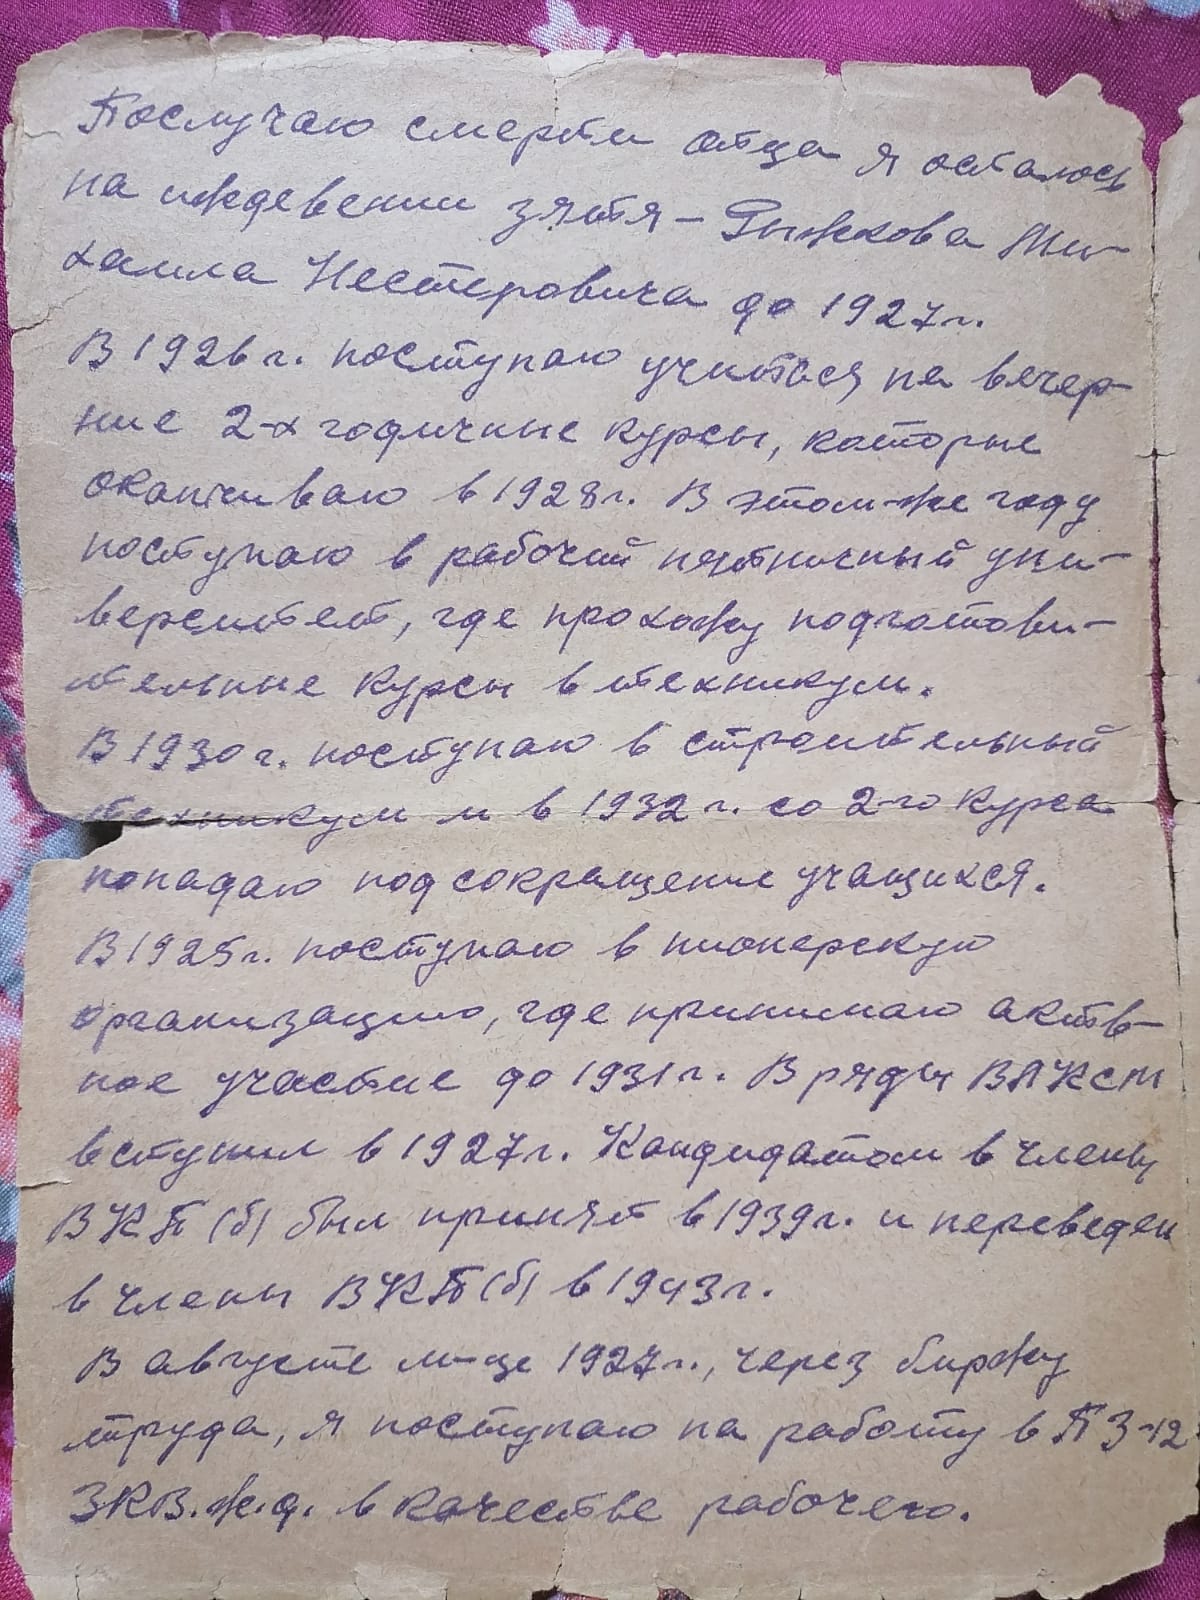 Послучаю смерти отца я остаюсь
на иждевении зятя – Рыжкова Ми-
хаила Нестеровича до 1927г.
В 1926 г. поступаю учиться на вечер-
ние 2-х годичные курсы, которые
оканчиваю в 1928г. В этом-же году
поступаю в рабочий пятничный уни-
верситет, где прохожу подготови-
тельные курсы в техникум.
В 1930 г. поступаю в строительный
техникум и в 1932 г. со 2-го курса
попадаю под сокращение учащихся.
В 1925г. поступаю в пионерскую
организацию, где принимаю актв-
ное участие до 1931г. В ряды ВЛКСМ
вступил в 1927г. Кандидатом в члены
ВКП(б) был принят в 1939г. и переведен
в члены ВКП(б) в 1943г.
В августе м-це 1927г., через биржу
труда, я поступаю на работу в ПЗ-12
ЗКВ.ж.д. в качестве рабочего.